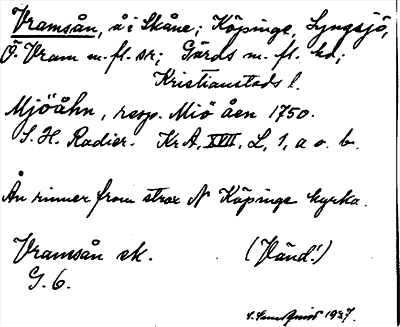 Vramsån, å i Skåne; Köpinge, Lyngsjö,
Ö. Vram m. fl. sr; Gärds m. fl. hd;
Kristianstads l.
Mjöåhn, resp. Miö åen 1750.
S. H. Radier. Kr A, XVII, L, 1, a o. b.
Ån rinner fram strax N Köpinge kyrka.
Vramsån ek. (Vänd!)
G. 6.
1937.